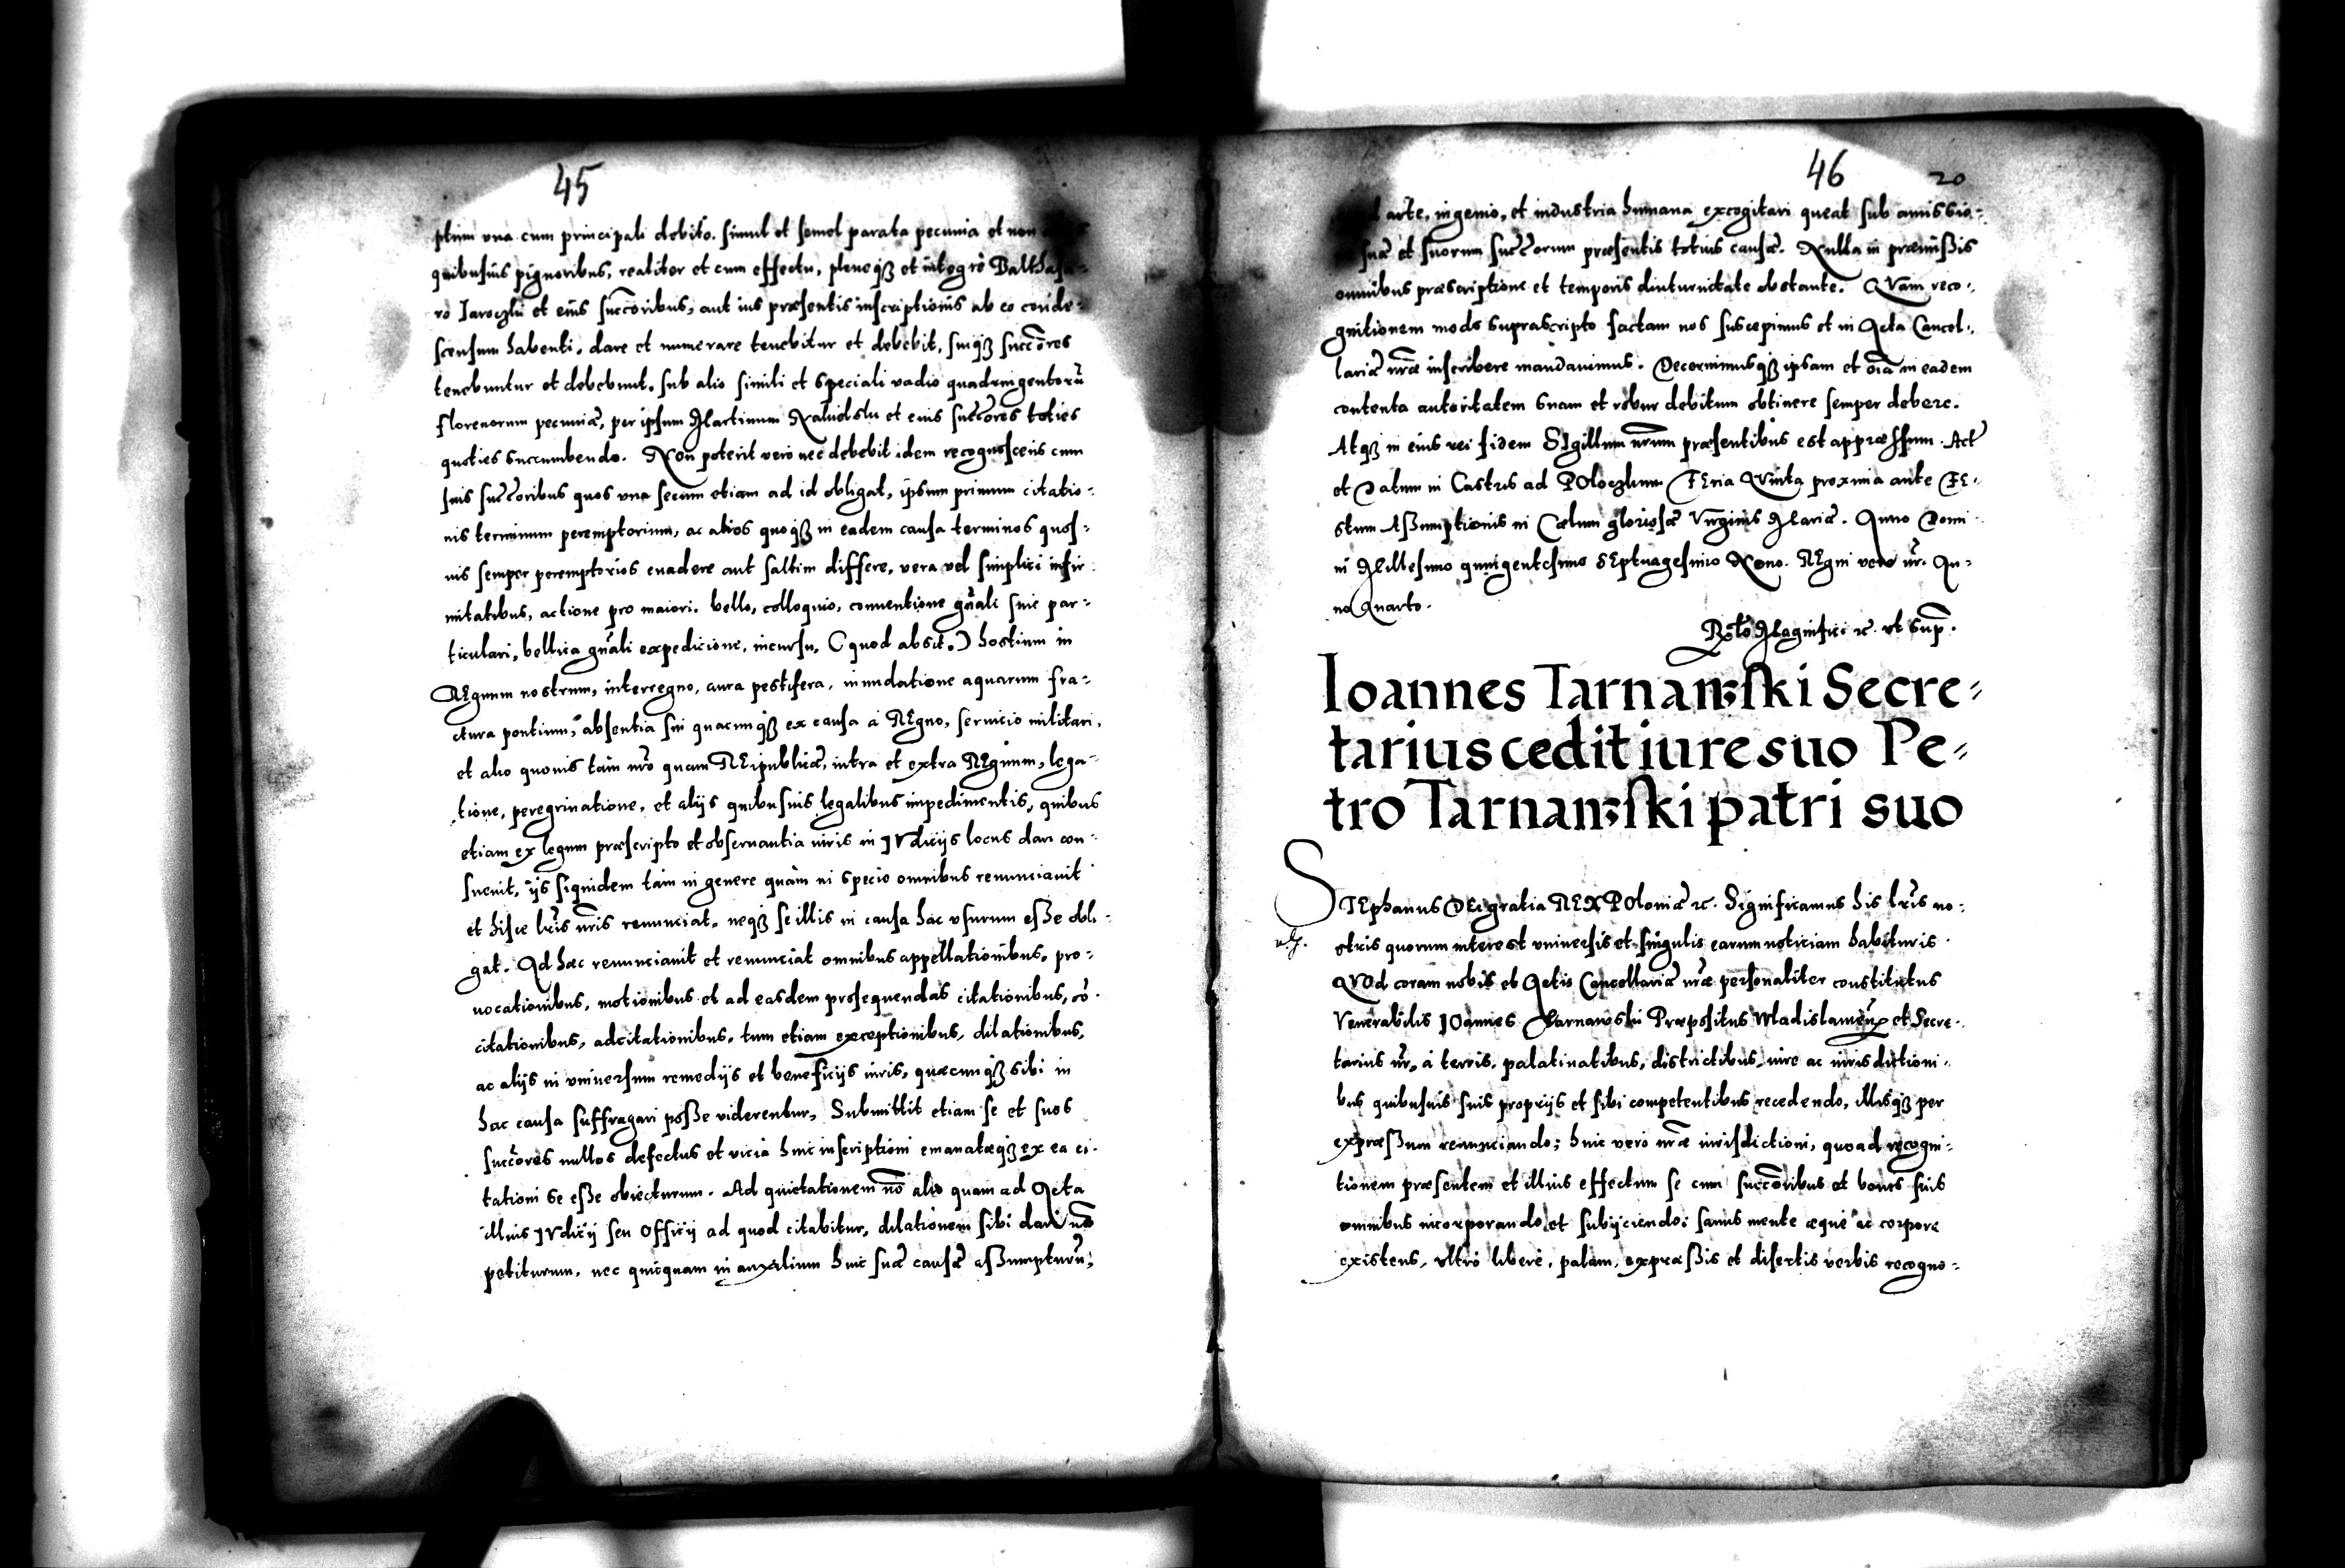 45
ptum vna cum principali debito. simul et semel parata pecunia et non
quibusuis pignoribus, realiter et cum effectu, pleneqꝫ et integrò Balthasa=
rò Iaroczki et eius succ̃oribus, aut ius præsentis inscriptionis ab eo conde=
scensum habenti, dare et numerare tenebitur et debebit, suiqꝫ succ̃ores
tenebuntur et debebunt, sub alio simili et speciali vadio quadringentorũ
florenorum pecuniæ, per ipsum Martinum et eius succ̃ores toties
quoties succumbendo. Non poterit verò nec debebit idem recognoscens cum
suis succ̃oribus quos vna secum etiam ad id obligat, ipsum primum citatio=
nis terminum peremptorium, ac alios quoqꝫ in eadem causa terminos quos=
uis semper peremptorios euadere aut saltim differe, vera vel simplici infir=
mitatibus, actione pro maiori. bello, colloquio, conuentione gñali siue par=
ticulari, bellica gñali expedicione, incursu, (quod absit.) hostium in
REgnum nostrum, interregno, aura pestifera, inundatione aquarum fra=
ctura pontium, absentia sui quacunqꝫ ex causa à REgno, seruicio militari,
et alio quouis tàm nr̃o quam REipublicæ, intra et extra REgnum, lega=
tione, peregrinatione, et alijs quibusuis legalibus impedimentis, quibus
etiam ex legum præscripto et obseruantia iuris in IVdicijs locus dari con=
sueuit, ijs siquidem tàm in genere quàm in specie omnibus renunciauit
et hisce lr̃is nr̃is renunciat, neqꝫ se illis in causa hac vsurum eße obli=
gat. Ad hæc renunciauit et renunciat omnibus appellationibus, pro=
uocationibus, motionibus et ad easdem prosequendas citationibus, cõ=
citationibus, adcitationibus, tum etiam exceptionibus, dilationibus,
ac alijs in vniuersum remedijs et beneficijs iuris, quæcunqꝫ sibi in
hac causa suffragari poße viderentur, Submittit etiam se et suos
succ̃ores nullos defectus et vicia huic inscriptioni emanatæqꝫ ex ea ci=
tationi se eße obiecturum. Ad quietationem nõ alio quam ad Acta
illius IVdicij seu Officij ad quod citabitur, dilationem sibi dari nõ
petiturum, nec quicquam in auxilium huic suæ causæ aßumpturũ,
46
20
arte, ingenio, et industria humana excogitari queat sub amissio=
suæ et suorum succ̃orum præsentis totius causæ. Nulla in præmißis
omnibus præscriptione et temporis diuturnitate obstante. QVam reco=
gnitionem modo suprascripto factam nos suscepimus et in Acta Cancel=
lariæ nr̃æ inscribere mandauimus. Decernimusqꝫ ipsam et oĩa in eadem
contenta autoritatem suam et robur debitum obtinere semper debere.
Atqꝫ in eius rei fidem SIgillum nr̃um præsentibus est appræssum. Act
et Datum in Castris ad POloczkum FEria QVinta proxima ante FE=
stum Aßumptionis in Cælum gloriosæ Virginis Mariæ. Anno Domi=
ni Millesimo quingentesimo SEptuagesimo Nono. REgni verò nr̃. An=
no Quarto.
Rel̃o Magnifici ꝛc. vt sup̃.
Ioannes Tarnawski Secre=
tarius cedit iure suo Pe=
tro Tarnawski patri suo
STEphanus DEi gratia REX POloniæ ꝛc. Significamus his lr̃is no=
stris quorum interest vniuersis et singulis earum noticiam habituris
QVod coram nobis et Actis Cancellariæ nr̃æ personaliter constitutus
Venerabilis IOannes Tarnawski Præpositus Wladislauieñ et Secre=
tarius nr̃, à terris, palatinatibus, districtibus, iure ac iurisdictioni=
bus quibusuis suis proprijs et sibi competentibus recedendo, illisqꝫ per
expræßum renunciando; huic verò nr̃æ iurisdictioni, quoad recogni=
tionem præsentem et illius effectum se cum succ̃oribus et bonis suis
omnibus incorporando et subijciendo: sanus mente æquè ac corpore
existens, vltrò liberè, palam, expræßis et disertis verbis recogno=